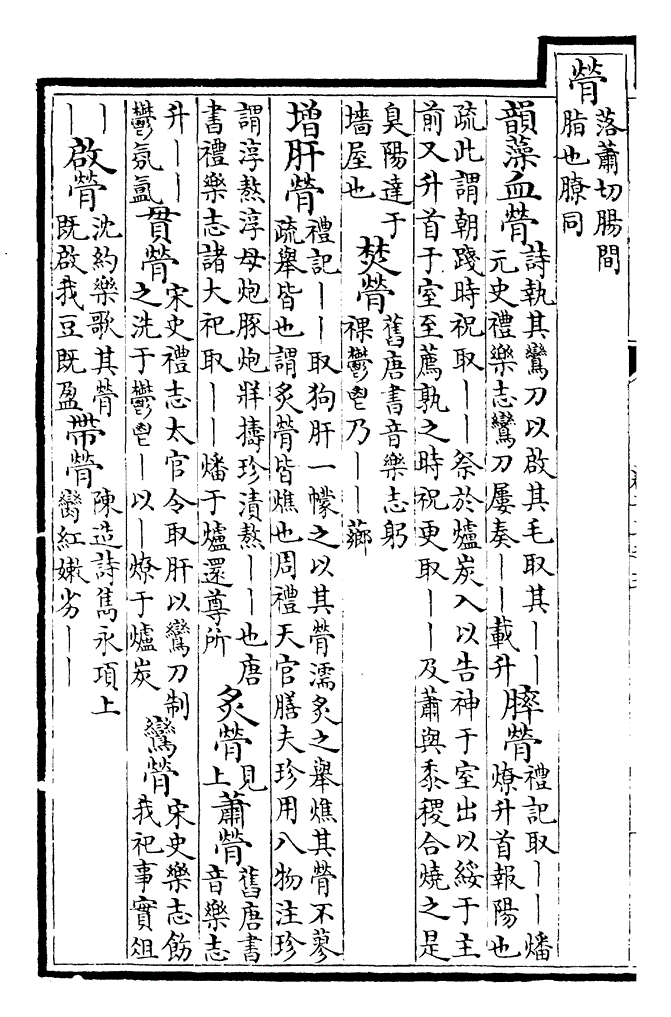 膋
落蕭切腸間
脂也膫同
韻藻血膋
詩執其鸞刀以啟其毛取其丨丨
元史禮樂志鸞刀屢奏丨丨載升
膟膋
禮記取丨丨燔
燎升首報陽也
疏此謂朝踐時祝取丨丨祭於爐炭入以告神于室出以綏于主
前又升首于室至薦孰之時祝更取丨丨及蕭與黍稷合燒之是
臭陽達于
墻屋也
焚膋
舊唐書音樂志躬
祼鬱鬯乃丨丨薌
增肝膋
禮記丨丨取狗肝一幪之以其膋濡炙之舉燋其膋不蓼
疏舉皆也謂炙膋皆燋也周禮天官膳夫珍用八物注珍
謂淳熬淳母炮豚炮牂擣珍漬熬丨丨也唐
書禮樂志諸大祀取丨丨燔于爐還尊所
炙膋
見
上
蕭膋
舊唐書
音樂志
升丨丨
鬱氛氳
貫膋
宋史禮志太官令取肝以鸞刀制
之洗于鬱鬯丨以丨燎于爐炭
鸞膋
宋史樂志飭
我祀事實俎
丨
丨
啟膋
沈約樂歌其膋
既啟我豆既盈
帶膋
陳造詩雋永項上
臠紅嫩劣丨丨